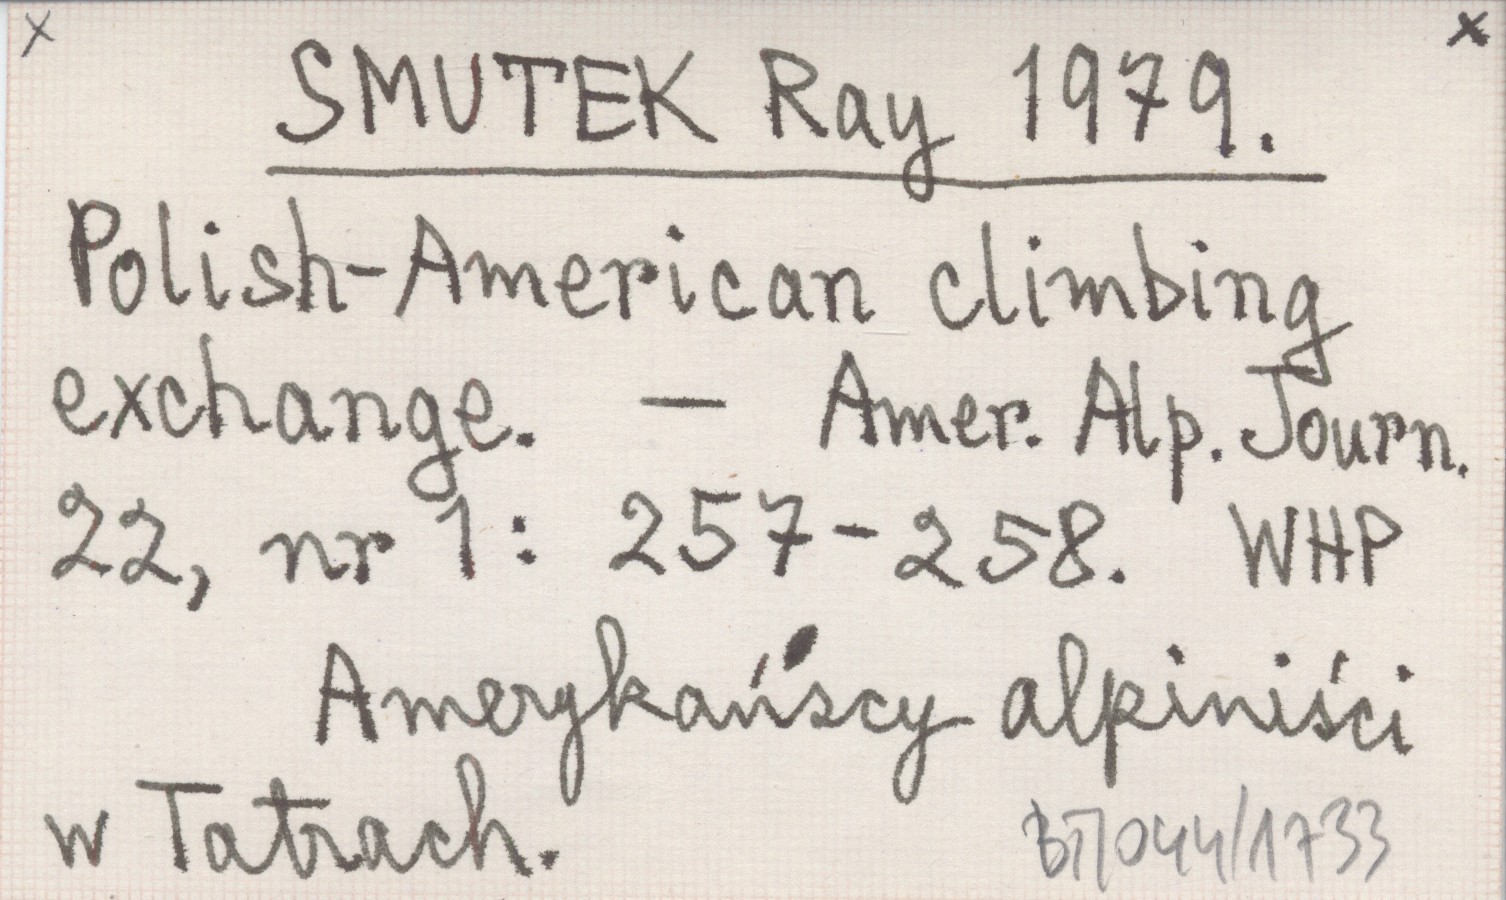 x x
SMUTEK Ray 1979.
Polish-American climbing
exchange. — Amer. Alp. Journ.
22, nr 1: 257-258. WHP
Amerykańscy alpiniści
w Tatrach.
BT/044/1733